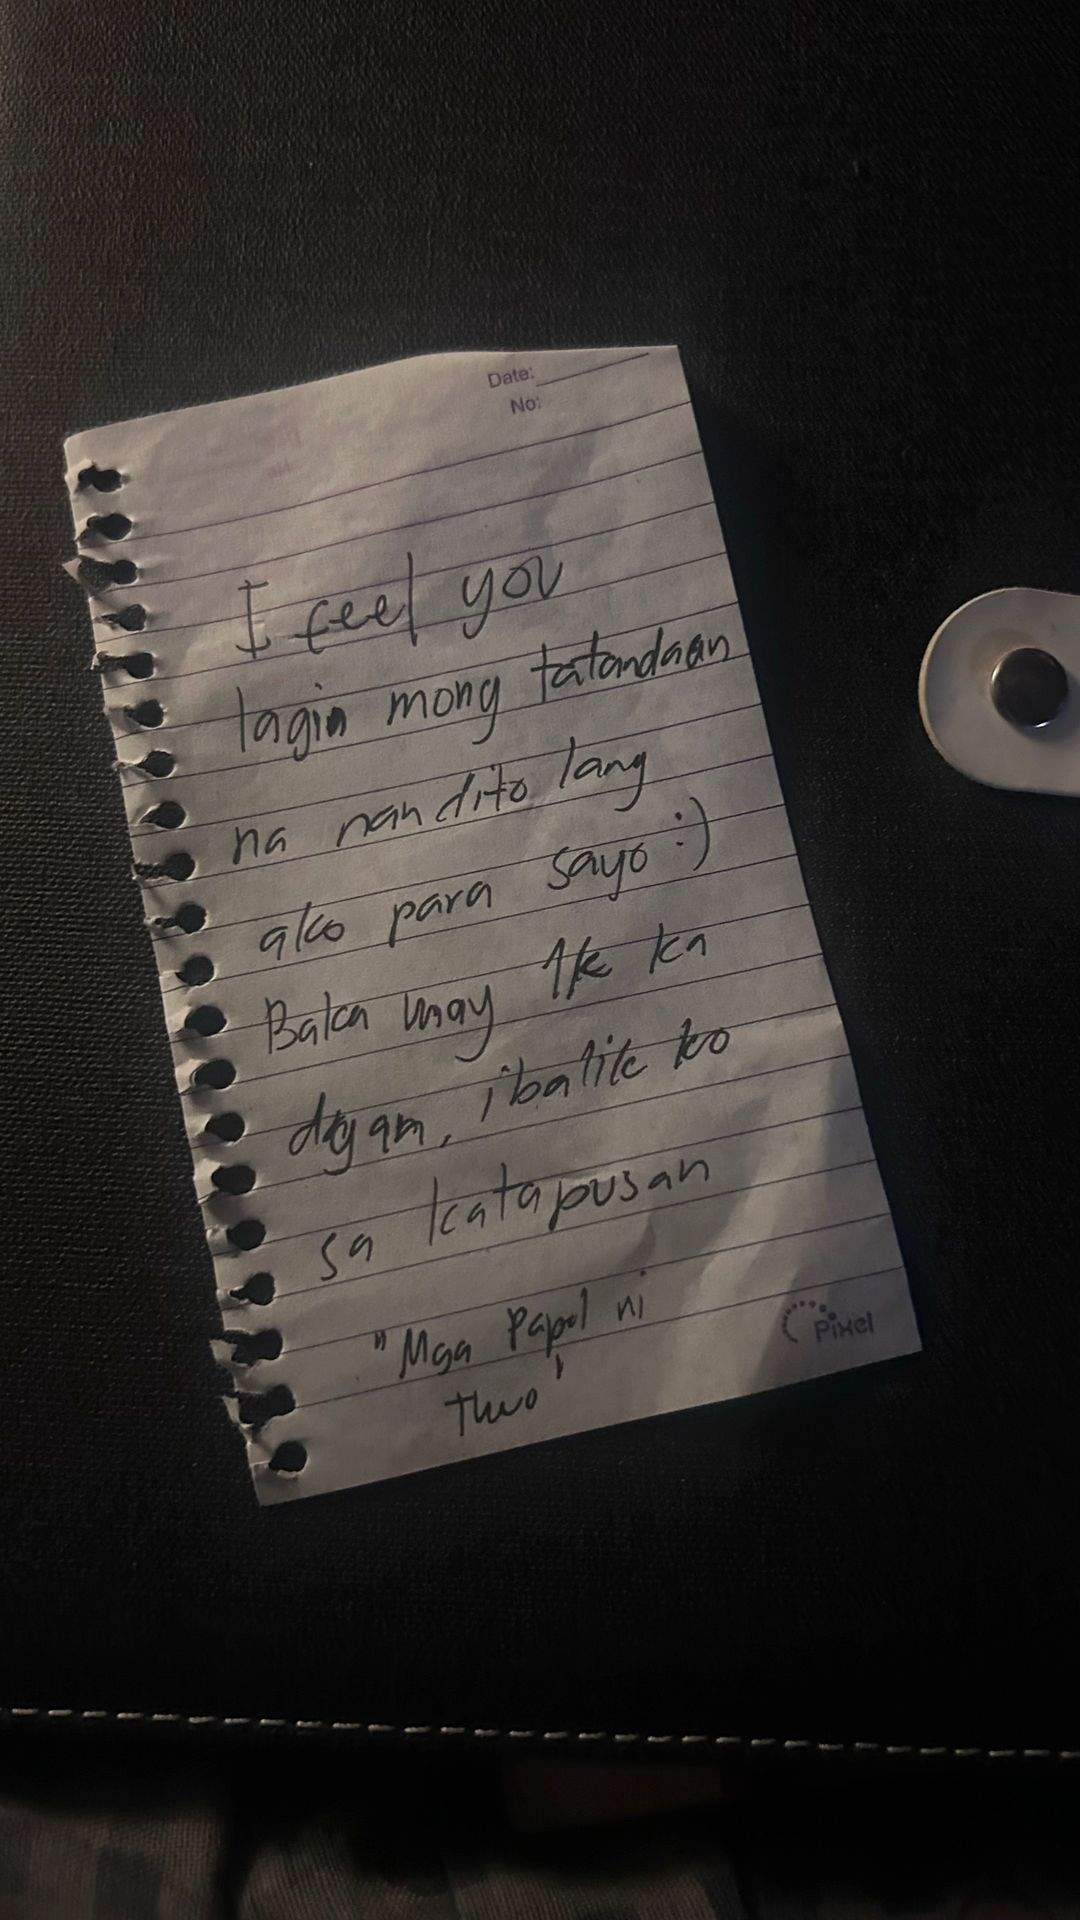 Date:
No:
I feel you
lagin mong tatandaan
na nandito lang
ako para sayo :)
Baka may 1k ka
dyan, ibalik ko
sa katapusan
"Mga Papel ni
two"
Pixel